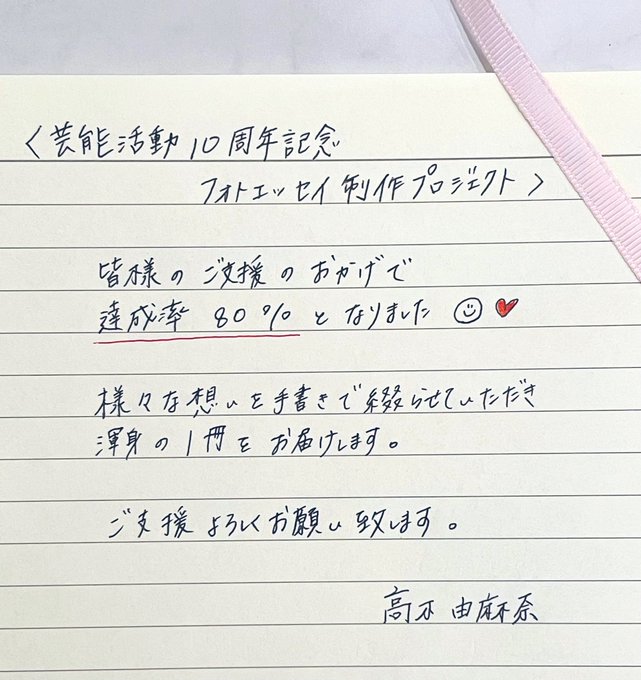 〈芸能活動10周年記念
フォトエッセイ制作プロジェクト〉
皆様のご支援のおかげで
達成率 80%となりました
様々な想いを手書きで綴らせていただき
渾身の1冊をお届けします。
ご支援よろしくお願い致します。
高木由麻奈